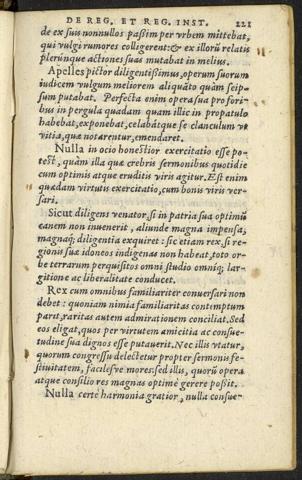 DE REG. ET REG. INST. 221
de ex suis nonnullos paßim per vrbem mittebat,
qui vulgi rumores colligerent: & ex illorū relatis
plerunque actiones suas mutabat in melius.
Apelles pictor diligentißimus, operum suorum
iudicem vulgum meliorem aliquāto quàm seip-
sum putabat. Perfecta enim opera sua pro fori-
bus in pergula quadam quam illic in propatulo
habebat, exponebat, celabátque se clanculum vt
vitia, quæ notarentur, emendaret.
Nulla in ocio honestior exercitatio esse po-
test, quàm illa quæ crebris sermonibus quotidie
cum optimis atque eruditis viris agitur. Est enim
quædam virtutis exercitatio, cum bonis viris ver-
sari.
Sicut diligens venator, si in patria sua optimū
canem non inuenerit, aliunde magna impensa,
magnaq́; diligentia exquiret: sic etiam rex, si re-
gionis suæ idoneos indigenas non habeat, toto or-
be terrarum perquisitos omni studio omniq; lar-
gitione ac liberalitate conducet.
Rex cum omnibus familiariter conuersari non
debet: quoniam nimia familiaritas contemptum
parit, raritas autem admirationem conciliat. Sed
eos eligat, quos per virtutem amicitia ac consue-
tudine sua dignos esse putauerit. Nec illis vtatur,
quorum congressu delectetur propter sermonis fe-
stiuitatem, facilésve mores: sed illis, quorū opera
atque consilio res magnas optimè gerere poßit.
Nulla certè harmonia gratior, nulla consue-